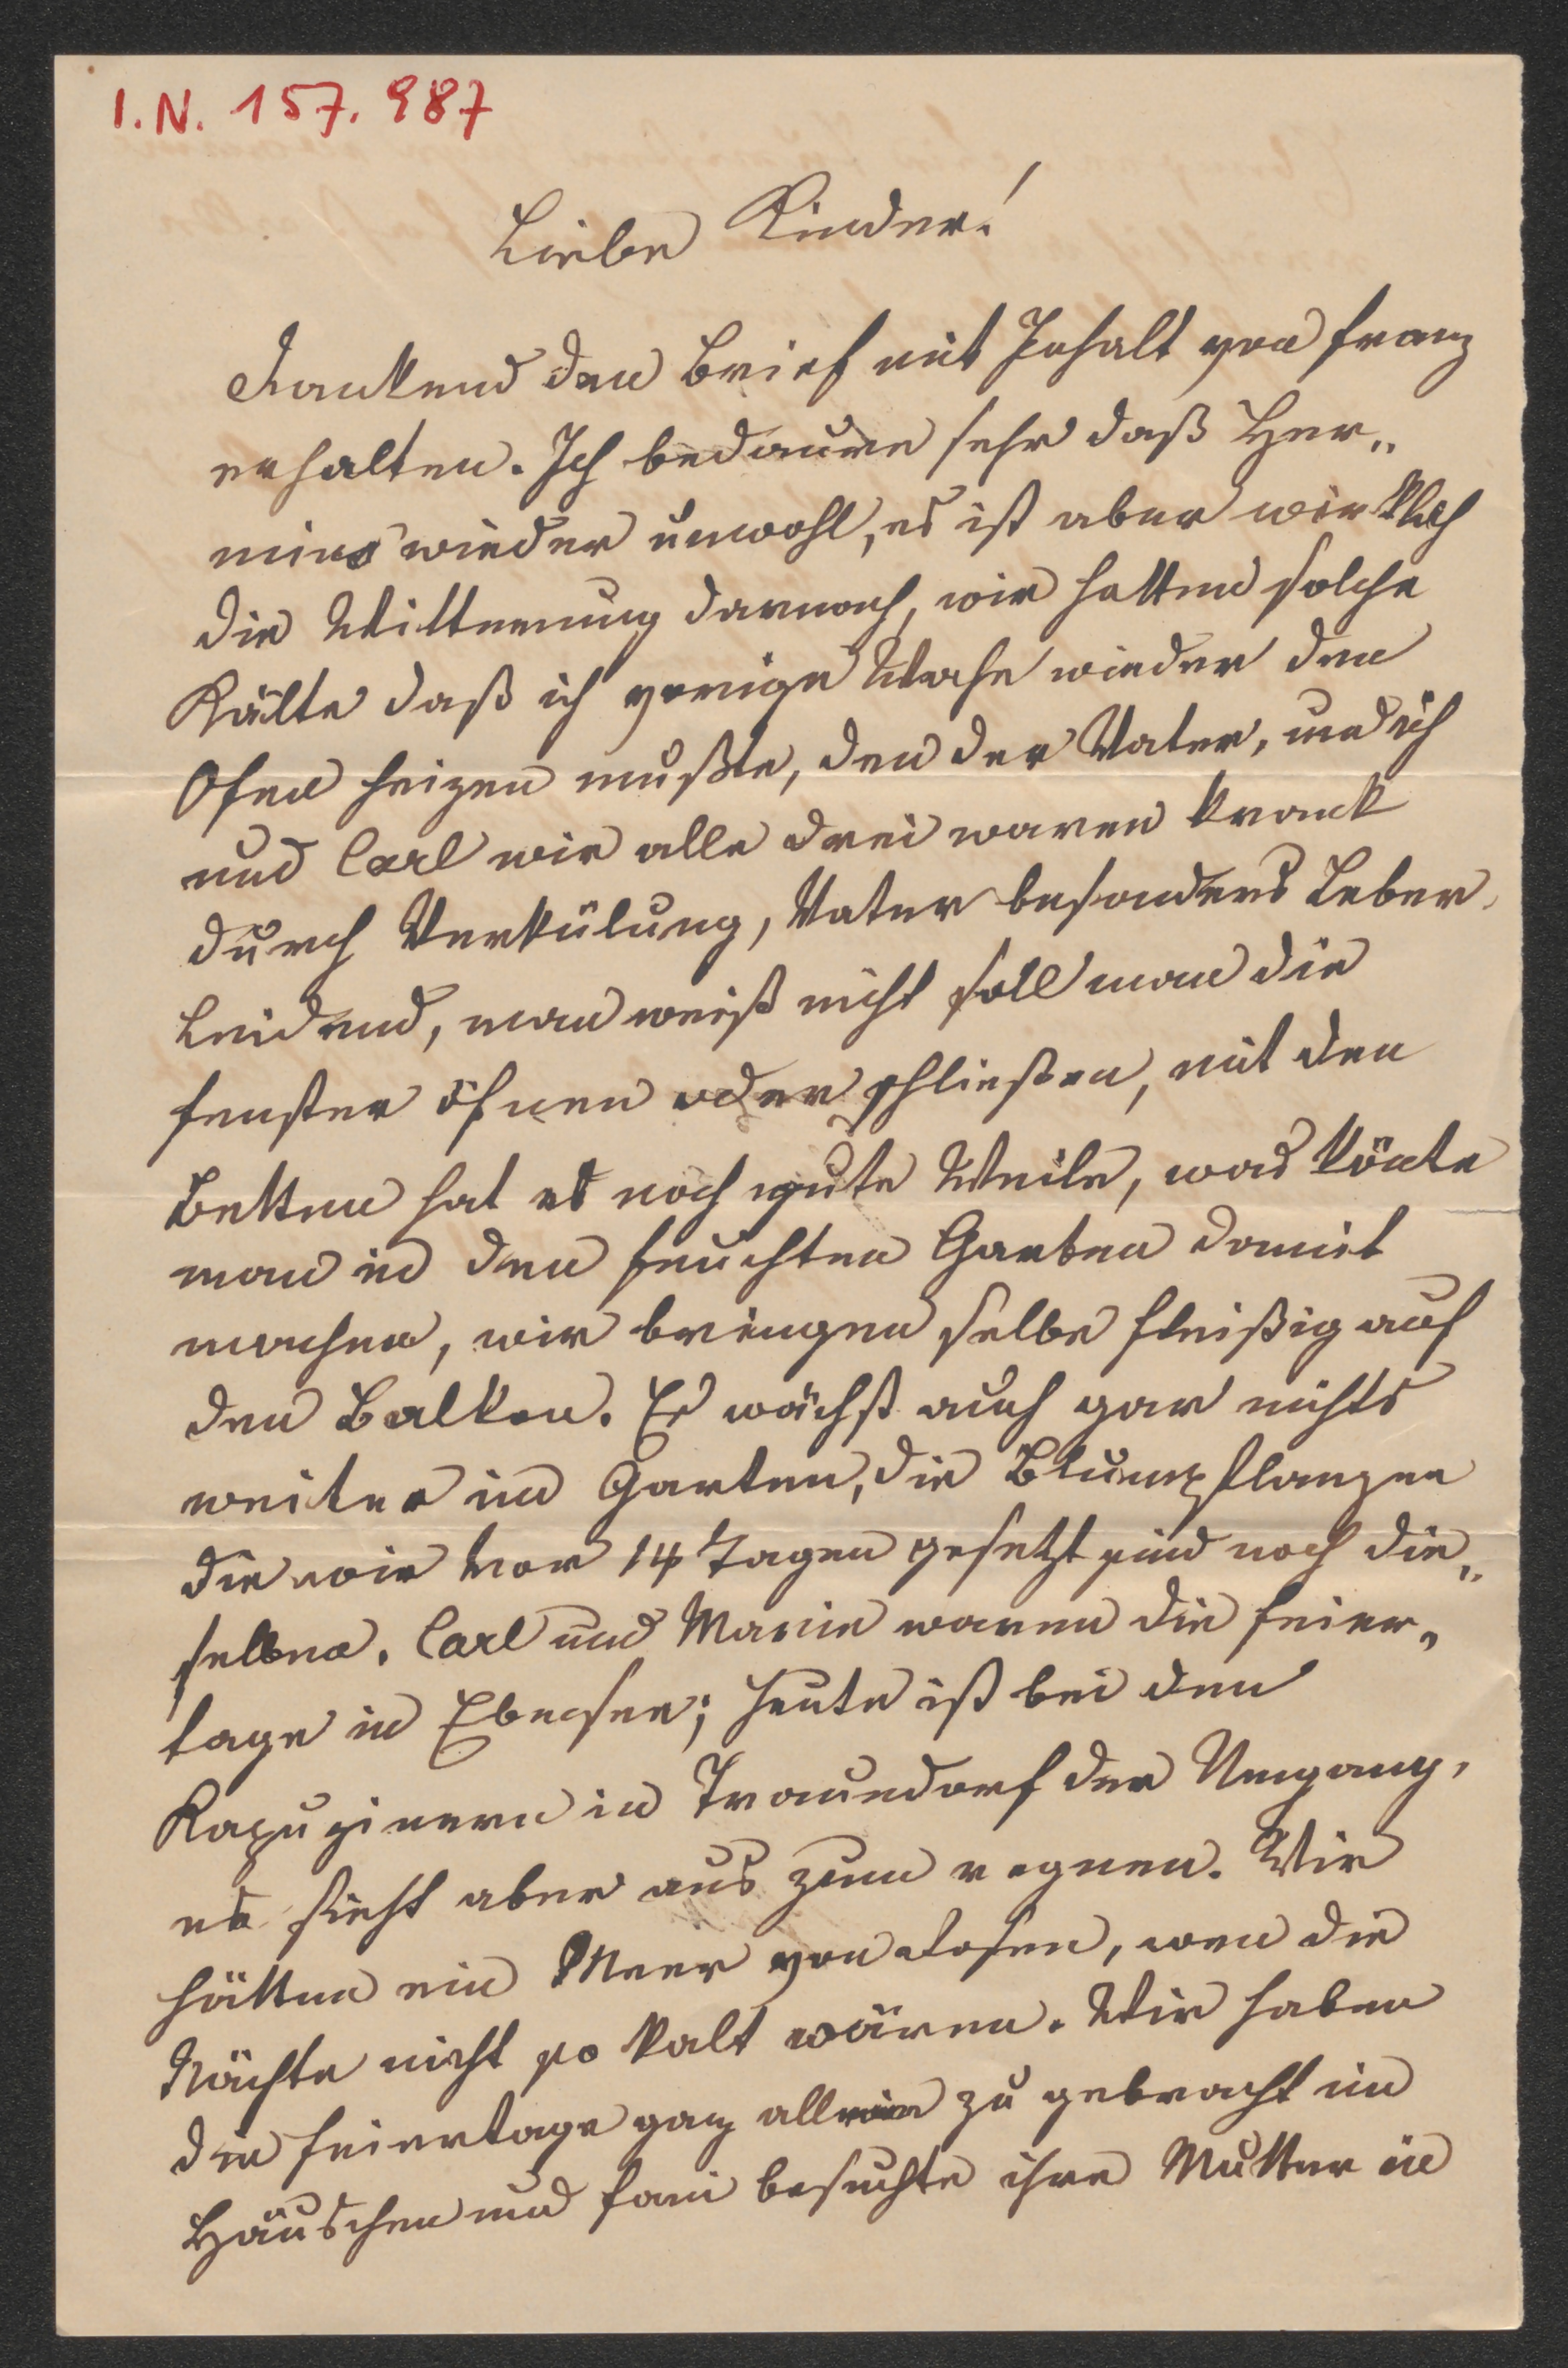 I.N. 157.987
Liebe Kinder!
Dankend den Brief mit Inhalt von Franz
erhalten. Ich bedaure sehr daß Her„
mine wieder unwohl, es ist aber wirklich
die Witterung darnach, wir hatten solche
Kälte daß ich vorige Woche wieder den
Ofen heizen mußte, den der Vater, und ich
und Carl wir alle drei waren krank
durch Verkülung, Vater besonders Leber
Leidend, man weiß nicht soll man die
Fenster öfnen oder schließen, mit den
Betten hat es noch gute Weile, was könte
man in den feuchten Garten damit
machen, wir bringen selbe fleißig auf
den Balkon. Es wächst auch gar nichts
weiter im Garten, die Blumpflanzen
die wir vor 14 Tagen gesetzt sind noch die„
selben. Carl und Marie waren die Feier„
tage in Ebensee; heute ist bei den
Kapuzinern in Traundorf der Umgang,
es sieht aber aus zum regnen. Wir
hätten ein Meer von Rosen, wen die
Nächte nicht so kalt wären. Wir haben
die Feiertage ganz allein zu gebracht im
Häuschen und Fani besuchte ihre Mutter in